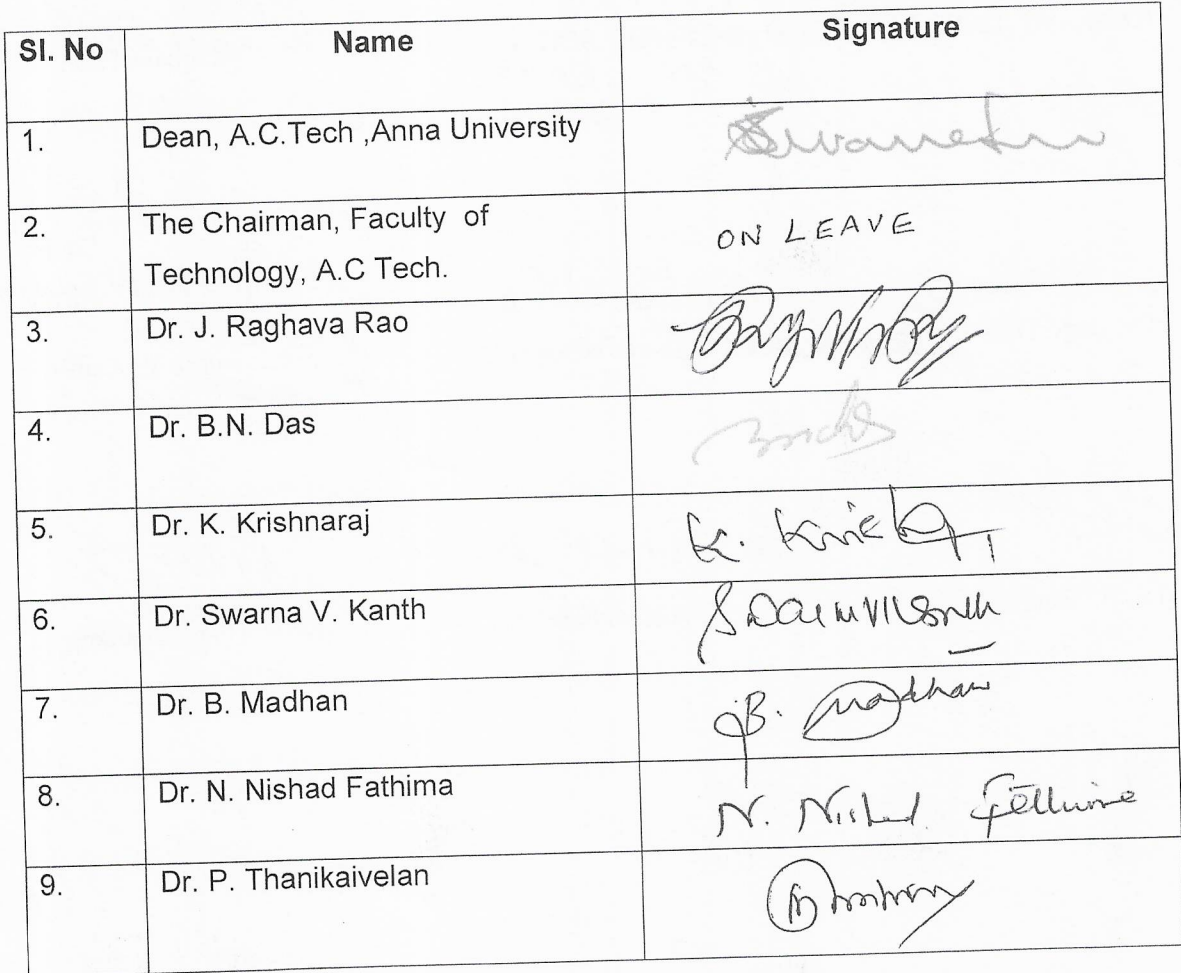 Sl. No Name Signature
1. Dean, A.C.Tech ,Anna University
2. The Chairman, Faculty of
Technology, A.C Tech. ON LEAVE
3. Dr. J. Raghava Rao
4. Dr. B.N. Das
5. Dr. K. Krishnaraj K.
6. Dr. Swarna V. Kanth
7. Dr. B. Madhan B. Madhan
8. Dr. N. Nishad Fathima N.
9. Dr. P. Thanikaivelan